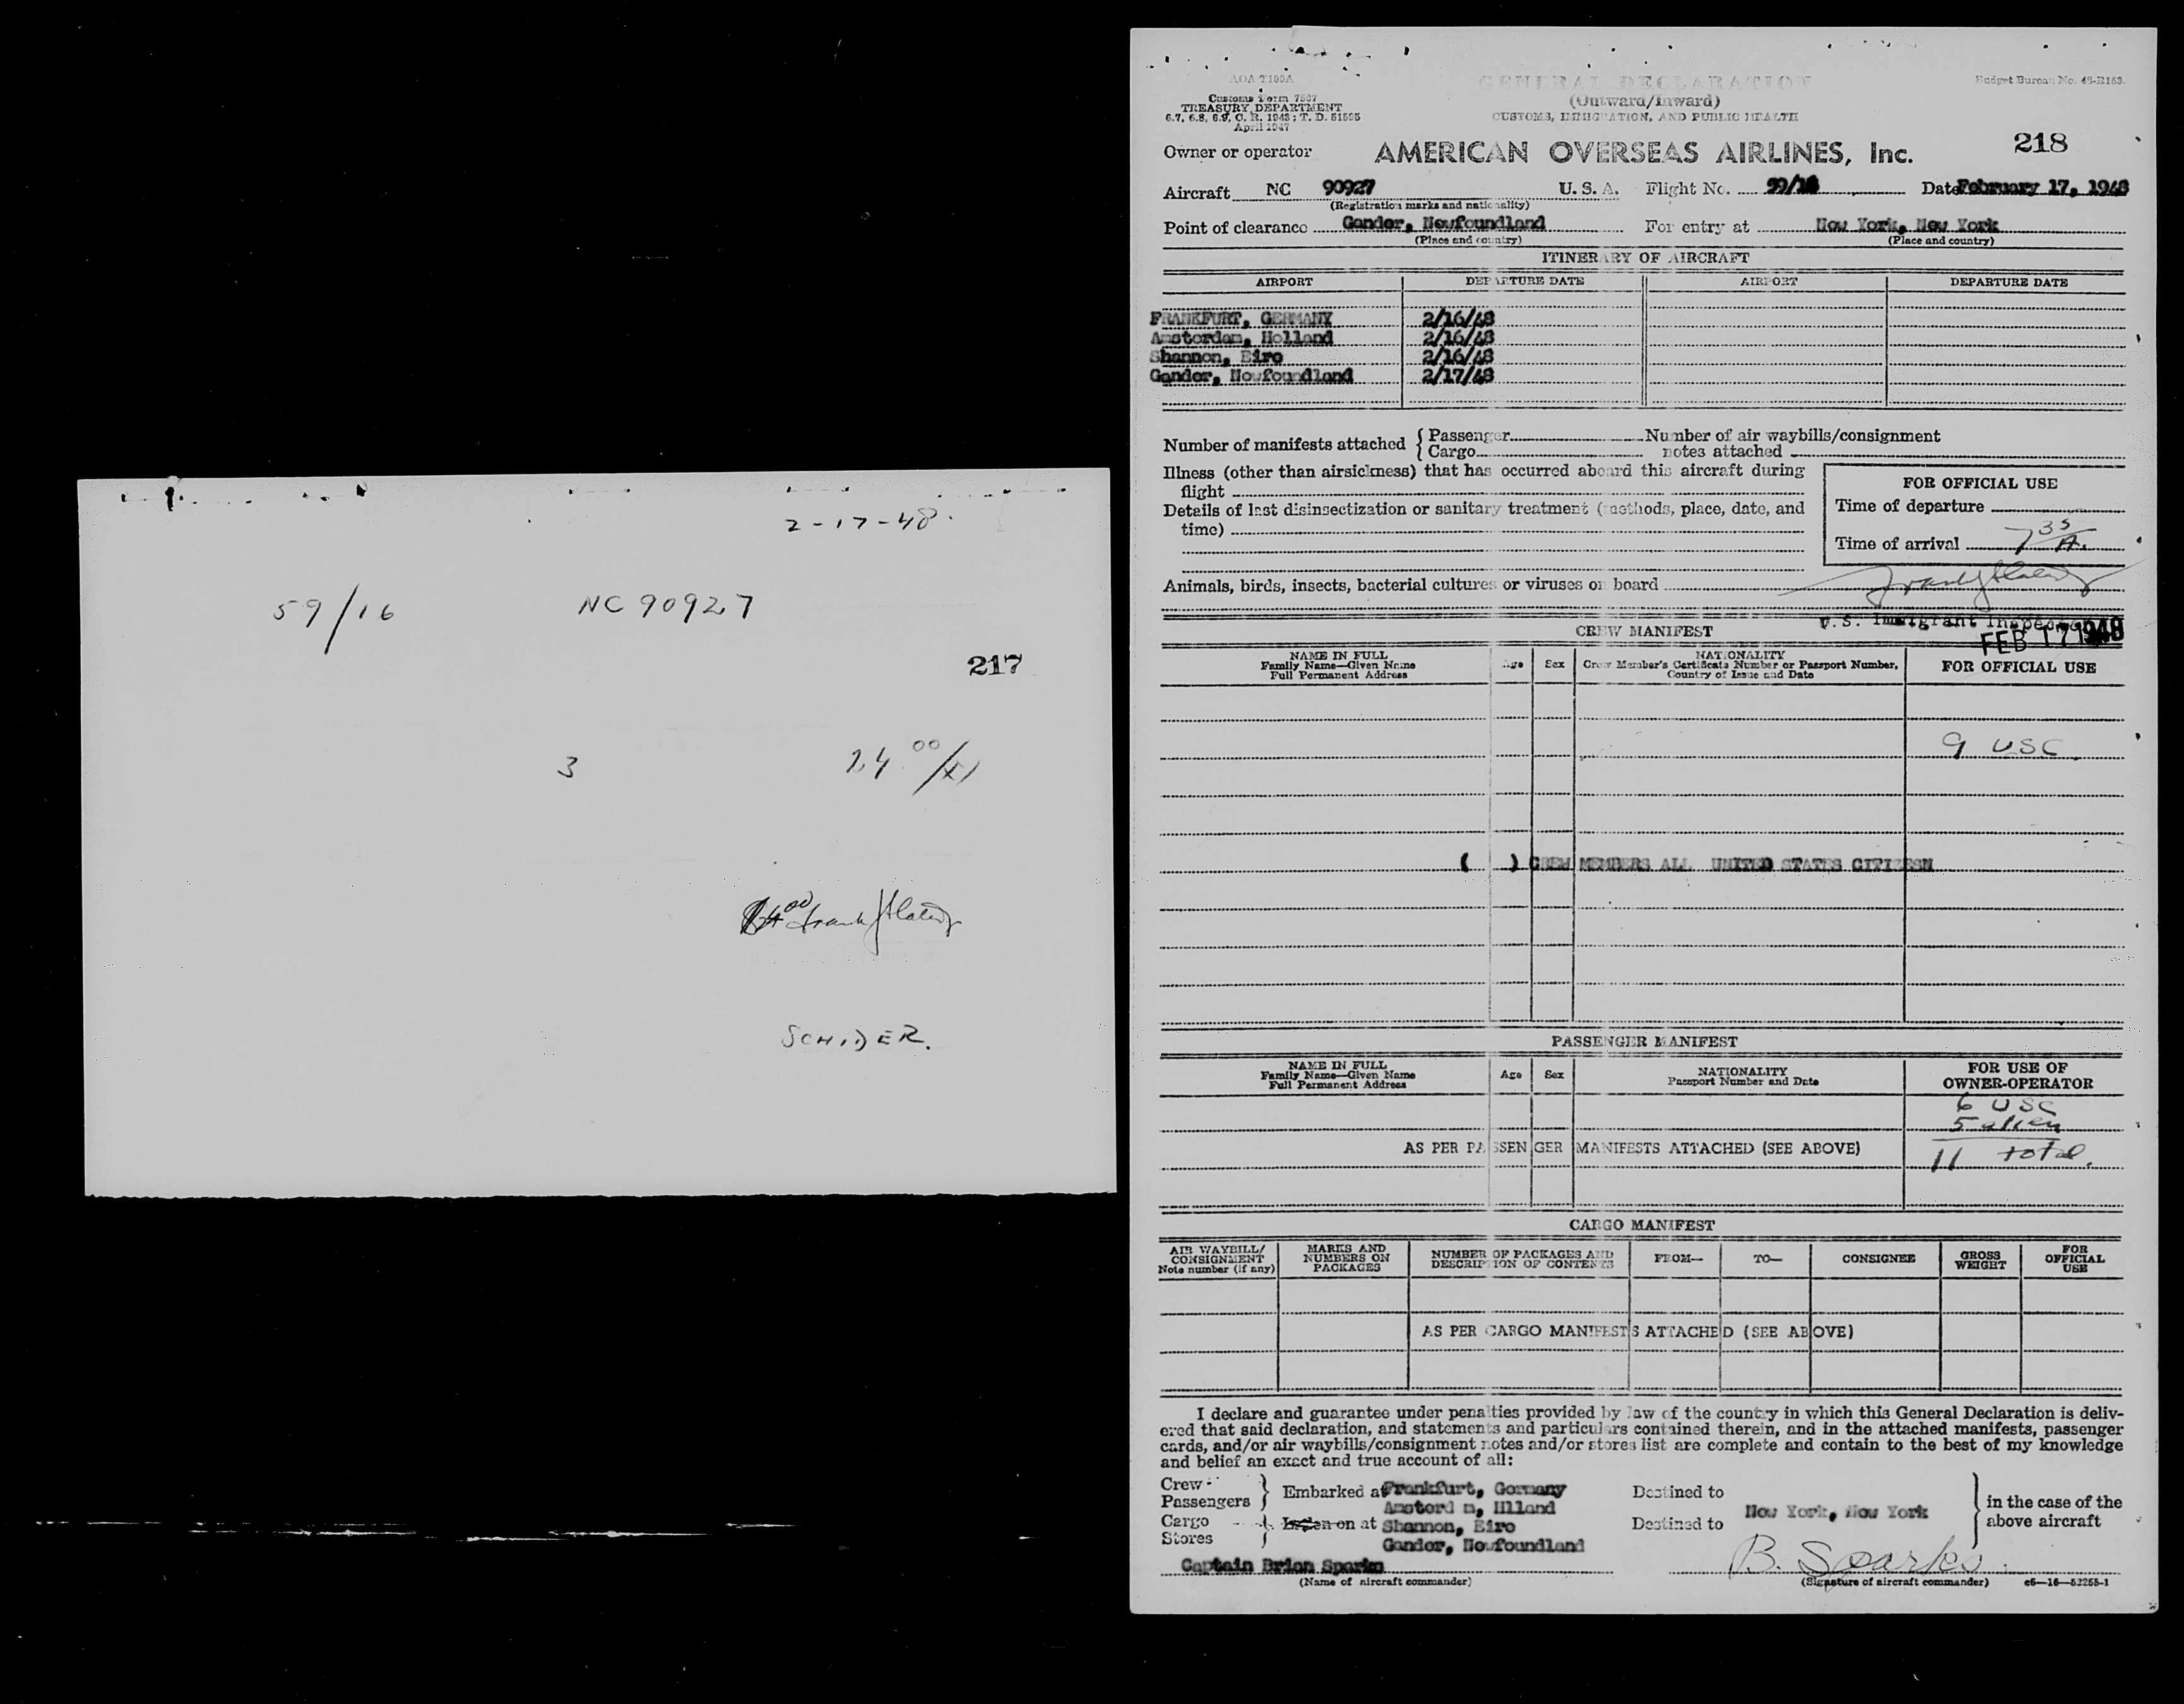 2-17-48.
59/16 NC 90927
217
3 24 00/XX
SCHIDER.
AOA T100A
Customs Form 7507
TREASURY DEPARTMENT
6.7, 6.8, 6.9, C. R. 1943; T. D. 51505
April 1947
GENERAL DECLARATION
(Outward/Inward)
CUSTOMS, IMMIGRATION, AND PUBLIC HEALTH
Budget Bureau No. 48-R153.
218
Owner or operator AMERICAN OVERSEAS AIRLINES, Inc.
Aircraft NC 90927 U. S. A. Flight No. Date February 17, 1948
(Registration marks and nationality)
Point of clearance Gander, Newfoundland For entry at New York, New York
(Place and country) (Place and country)
ITINERARY OF AIRCRAFT
AIRPORT DEPARTURE DATE AIRPORT DEPARTURE DATE
FRANKFURT, GERMANY 2/16/48
Amsterdam, Holland 2/16/48
Shannon, Eire 2/16/48
Gander, Newfoundland 2/17/48
Number of manifests attached { Passenger Number of air waybills/consignment
Cargo notes attached
Illness (other than airsickness) that has occurred aboard this aircraft during
flight
Details of last disinsectization or sanitary treatment (methods, place, date, and
time)
FOR OFFICIAL USE
Time of departure
Time of arrival 7 35 A.
Animals, birds, insects, bacterial cultures or viruses on board
U. S. Immigrant Inspector
FEB 17 1948
CREW MANIFEST
NAME IN FULL
Family Name—Given Name
Full Permanent Address
Age Sex
NATIONALITY
Crew Member's Certificate Number or Passport Number,
Country of Issue and Date
FOR OFFICIAL USE
9 USC
( ) CREW MEMBERS ALL UNITED STATES CITIZESN
PASSENGER MANIFEST
NAME IN FULL
Family Name—Given Name
Full Permanent Address
Age Sex
NATIONALITY
Passport Number and Date
FOR USE OF
OWNER-OPERATOR
6 USC
5 alien
AS PER PASSENGER MANIFESTS ATTACHED (SEE ABOVE) 11 total.
CARGO MANIFEST
AIR WAYBILL/
CONSIGNMENT
Note number (if any)
MARKS AND
NUMBERS ON
PACKAGES
NUMBER OF PACKAGES AND
DESCRIPTION OF CONTENTS
FROM— TO— CONSIGNEE
GROSS
WEIGHT
FOR
OFFICIAL
USE
AS PER CARGO MANIFESTS ATTACHED (SEE ABOVE)
I declare and guarantee under penalties provided by law of the country in which this General Declaration is deliv-
ered that said declaration, and statements and particulars contained therein, and in the attached manifests, passenger
cards, and/or air waybills/consignment notes and/or stores list are complete and contain to the best of my knowledge
and belief an exact and true account of all:
Crew
Passengers } Embarked at Frankfurt, Germany Destined to
Amsterd m, Hlland
Cargo
Stores } Laden on at Shannon, Eire Destined to New York, New York
Gander, Newfoundland
} in the case of the
above aircraft
Captain Brian Sparks B. Sparks.
(Name of aircraft commander) (Signature of aircraft commander) c6—16—52255-1